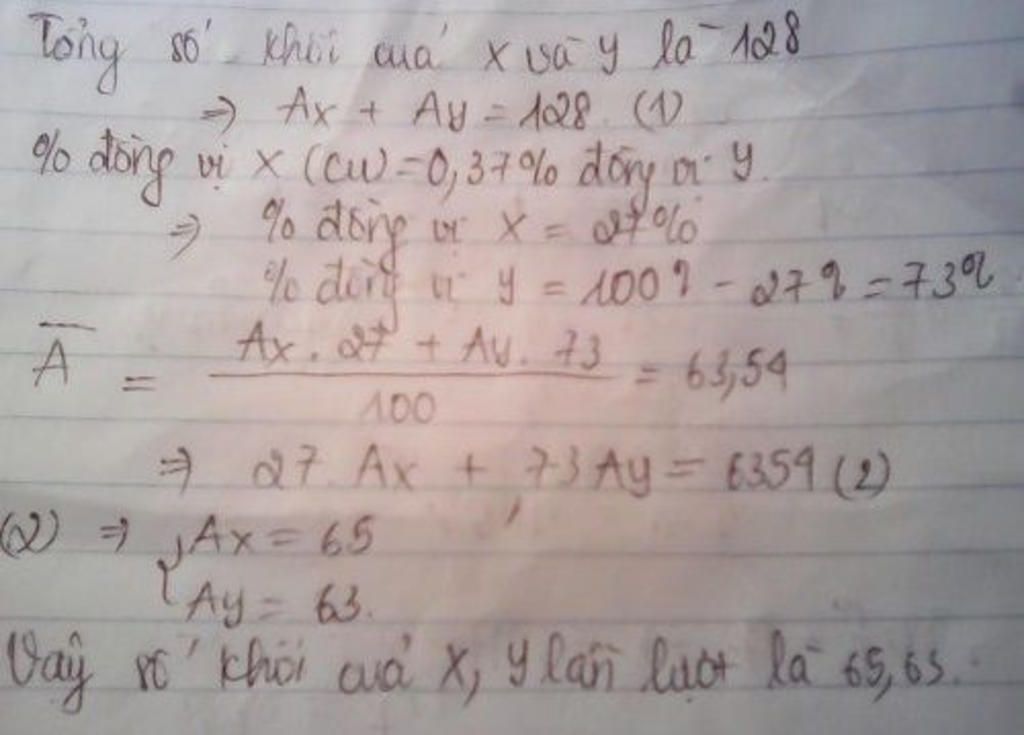 Tổng số khối của X và Y là 128
=> Ax + Ay = 128 (1)
% đồng vị X (Cu) = 0,37% đồng vị Y.
=> % đồng vị X = 27%
% đồng vị Y = 100% - 27% = 73%
A̅ = (Ax . 27 + Ay . 73) / 100 = 63,54
=> 27 Ax + 73 Ay = 6354 (2)
(2) => { Ax = 65
Ay = 63.
Vậy số khối của X, Y lần lượt là 65, 63.